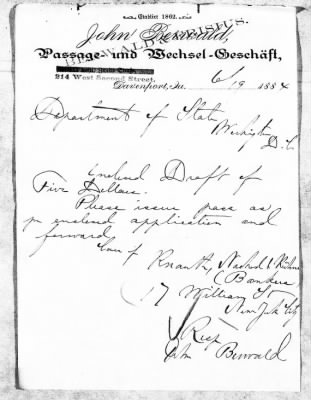 Etablirt 1862.
John Berwald,
BERWALD & FRISIUS.
Passage- und Wechsel-Geschäft,
214 West Second Street,
Davenport, Ia. 6/19 1884
Department of State
Washington
D.C.
Enclosed Draft of
Five Dollars.
Please issue pass as
pr enclosed application and
forward
Care of Knauth, Nachod & Kühne
(Bankers)
17 William St
New York City
Resp
Berwald